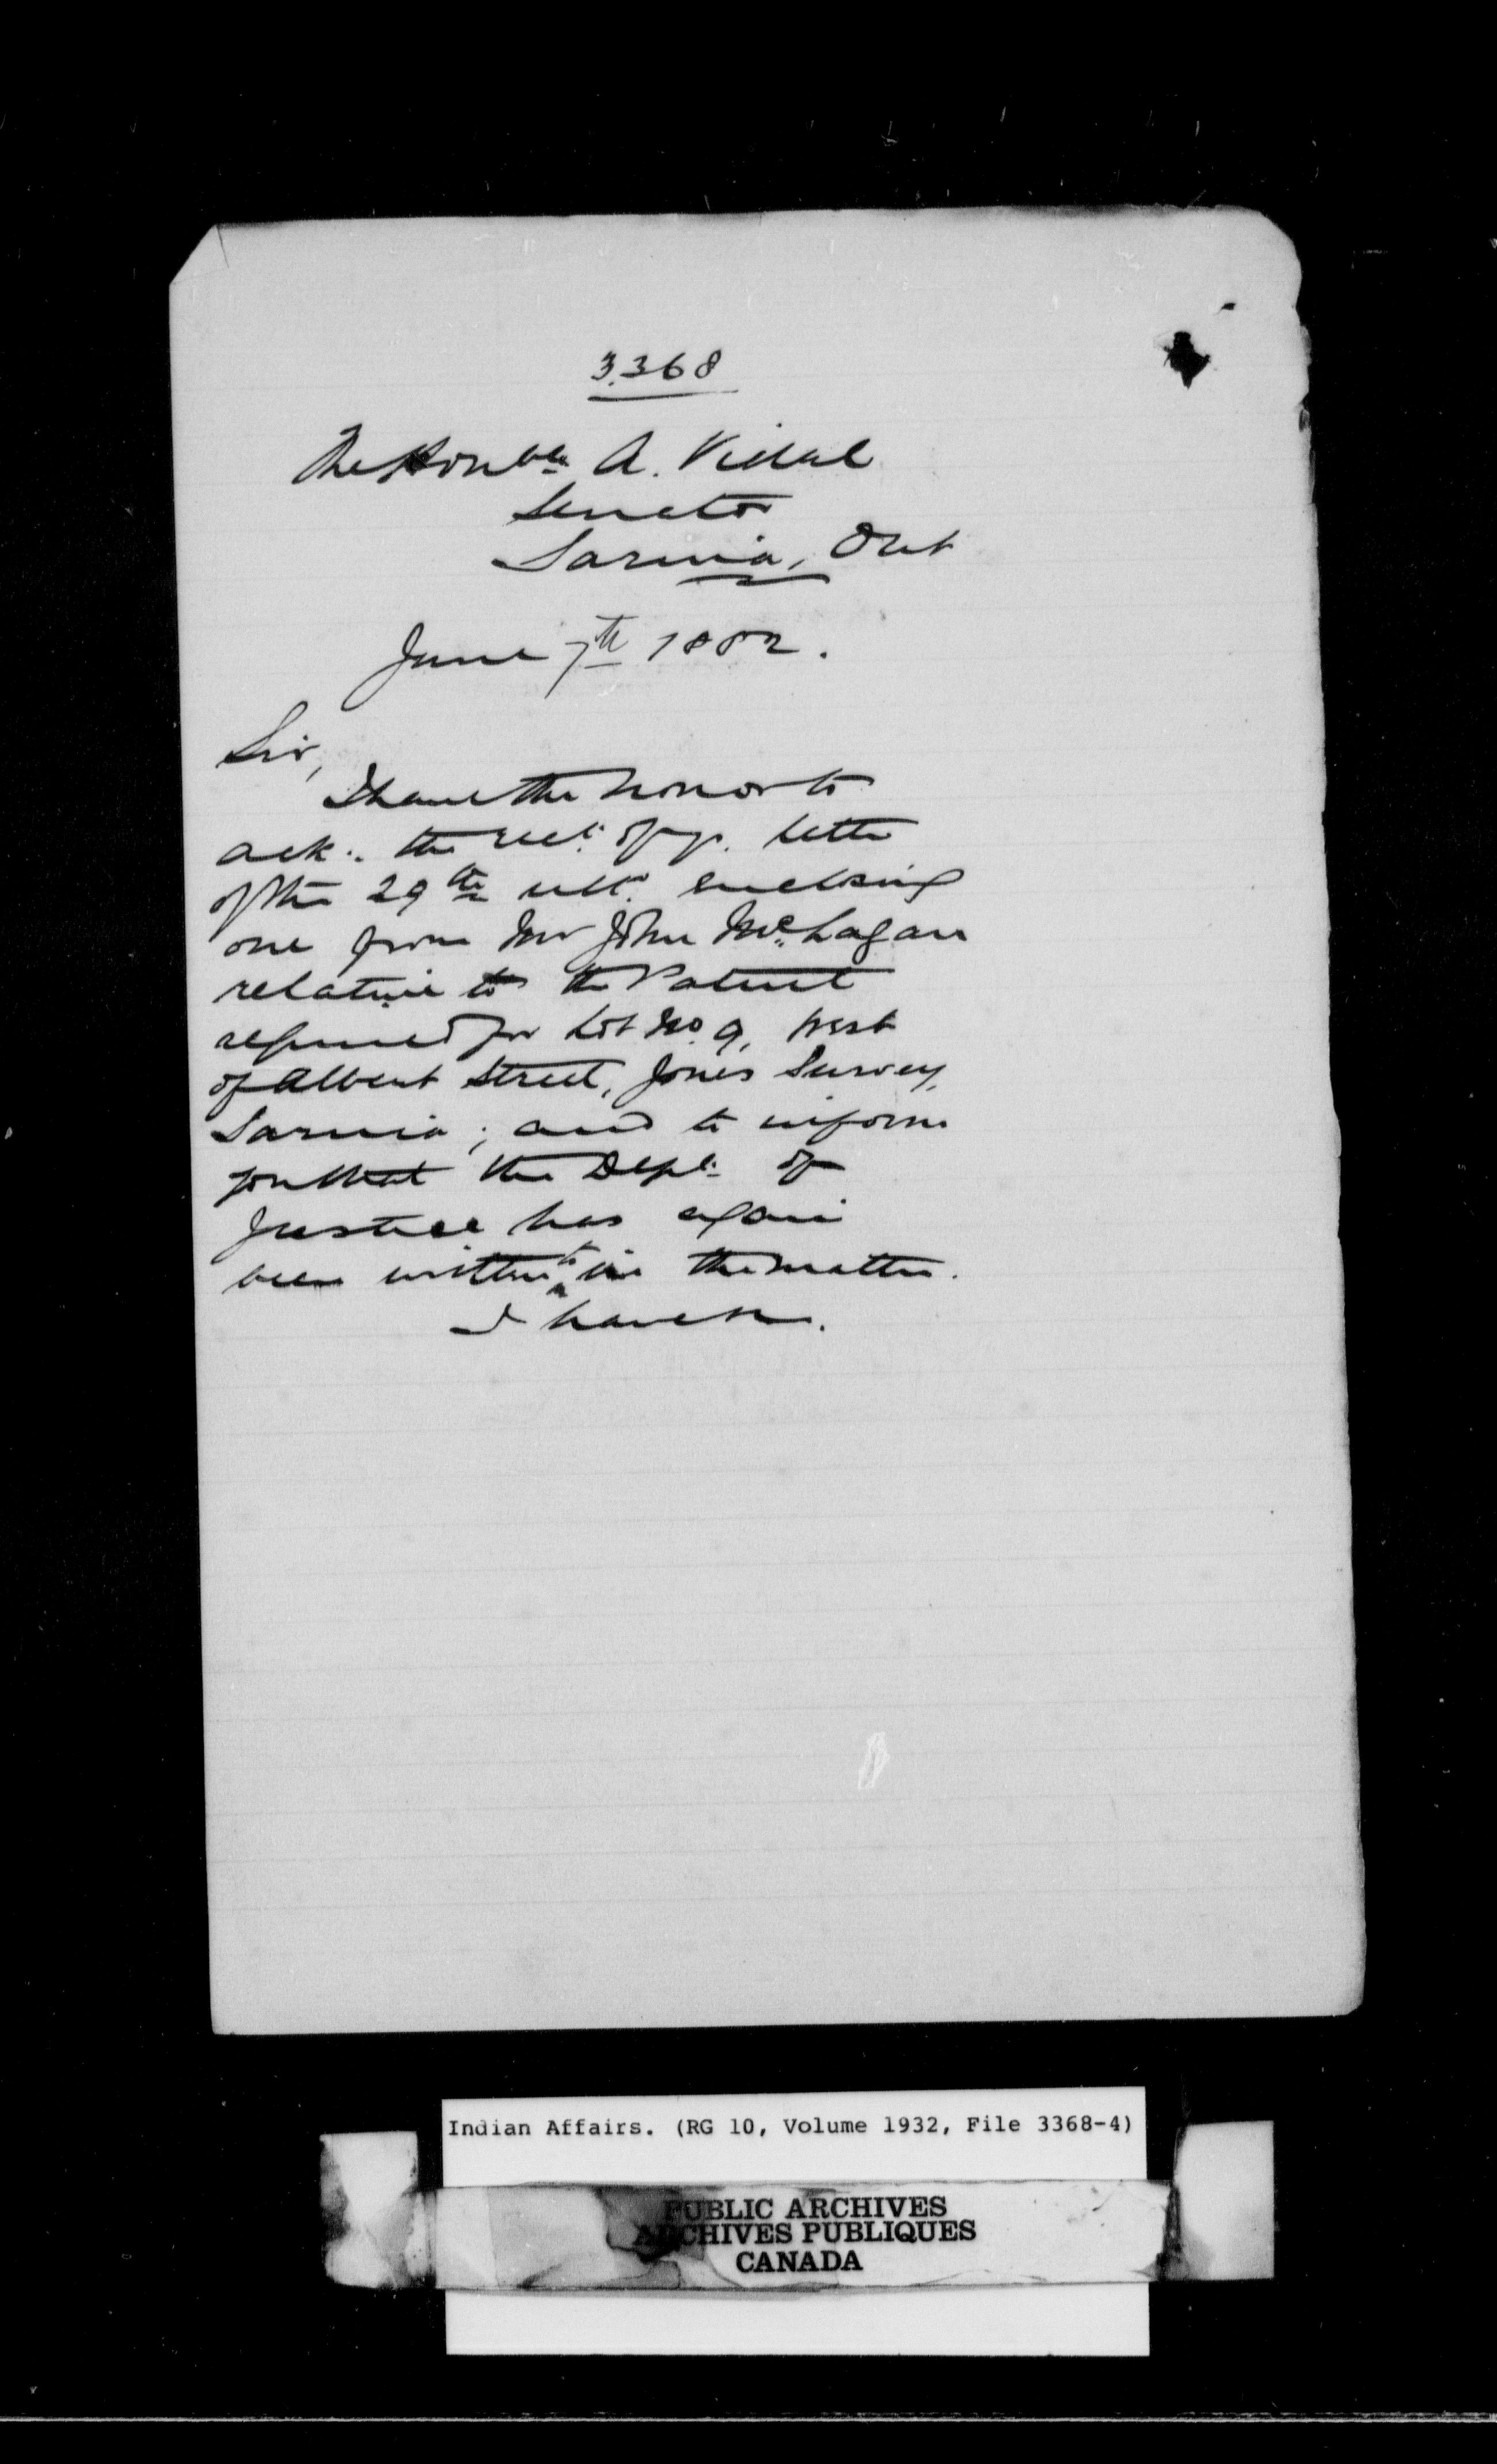 3368
The Honble A. Vidal
Senator
Sarnia, Ont
June 7th 1882.
Sir,
I have the honor to
ack: the rect. of yr. letter
of the 29th ulto. enclosing
one from Mr John McLagan
relative to the Patent
refused for Lot No. 9, West
of Albert Street, Jones Survey,
Sarnia; and to inform
you that the Dept: of
Justice has again
been written to in the matter.
I have &c.
Indian Affairs. (RG 10, Volume 1932, File 3368-4)
PUBLIC ARCHIVES
ARCHIVES PUBLIQUES
CANADA